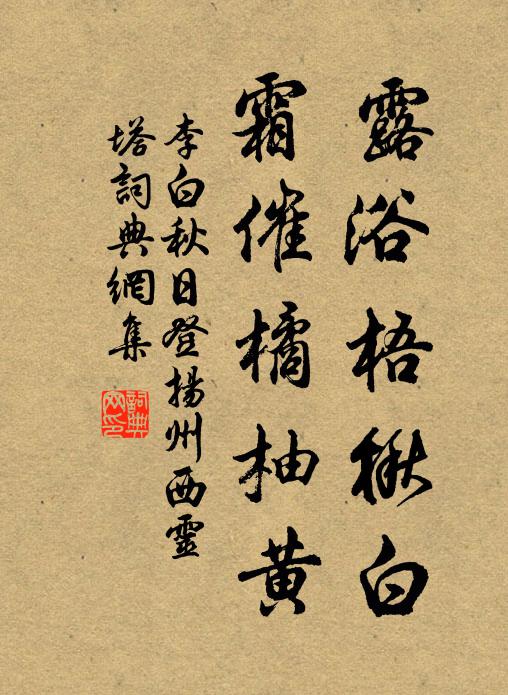 露浴梧楸白
霜催橘柚黄
李白秋日登揚州西靈
塔詞典網集
詞典
网印